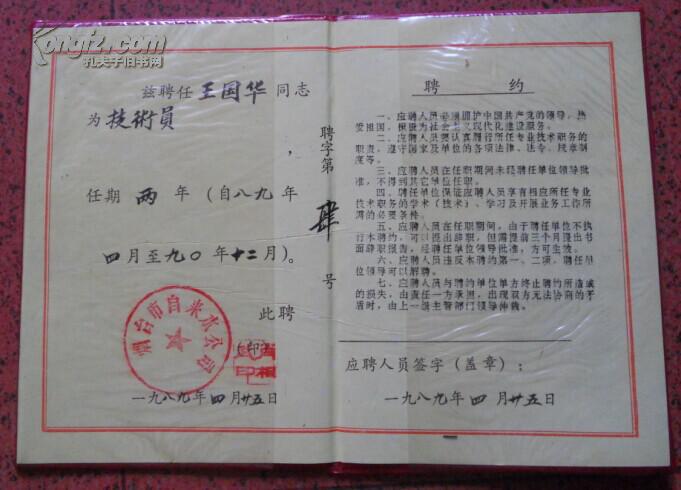 kongfz.com
孔夫子旧书网
兹聘任 王国华 同志
为 技術員 ，
任期 两 年（自八九年
四月至九〇年十二月）。
此聘
聘字第肆号
烟台市自来水公司
印
一九八九年四月廿五日
聘 约
一、应聘人员必须拥护中国共产党的领导，热
爱祖国，积极为社会主义现代化建设服务。
二、应聘人员要认真履行所任专业技术职务的
职责，遵守国家及单位的各项法律、法令、规章制
度等。
三、应聘人员在任职期间未经聘任单位领导批
准，不得到其它单位任职。
四、聘任单位保证应聘人员享有相应所任专业
技术职务的学术（技术）、学习及开展业务工作所
需的必要条件。
五、应聘人员在任职期间，由于聘任单位不执
行本聘约，可以提出辞职，但需提前三个月提出书
面辞职报告，经聘任单位领导批准，方可生效。
六、应聘人员违反本聘约第一、二项，聘任单
位领导可以解聘。
七、应聘人员与聘约单位单方终止聘约所造成
的损失，由责任一方承担，出现双方无法协商的矛
盾时，由上一级主管部门领导仲裁。
应聘人员签字（盖章）：
一九八九年四月廿五日